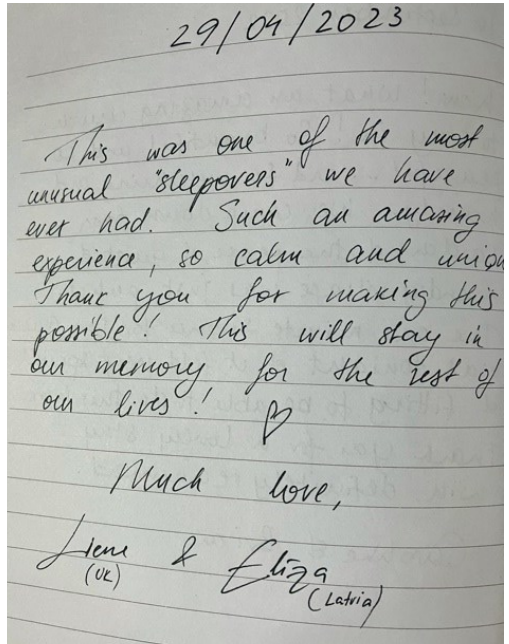 29/04/2023
This was one of the most
unusual "sleepovers" we have
ever had. Such an amazing
experience, so calm and uniqu
Thank you for making this
possible! This will stay in
our memory for the rest of
our lives! ♡
Much love,
Liene & Elīza
(UK) (Latvia)